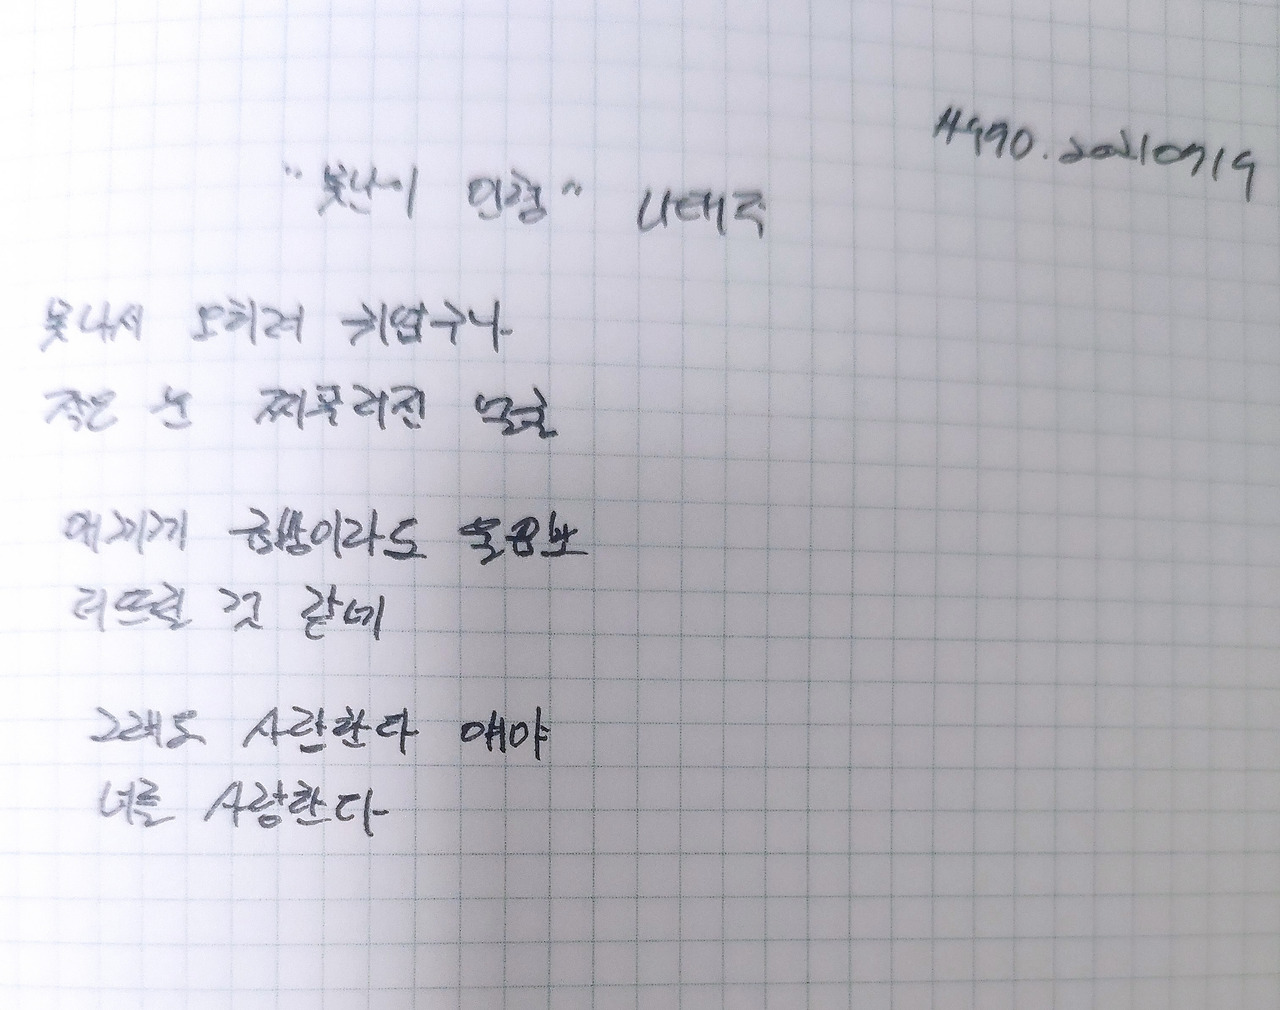 #990. 20210919
"못난이 인형" 나태주
못나서 오히려 귀엽구나
작은 눈 찌푸러진 얼굴
에게게 금방이라도 울음보
터뜨릴 것 같네
그래도 사랑한다 얘야
너를 사랑한다